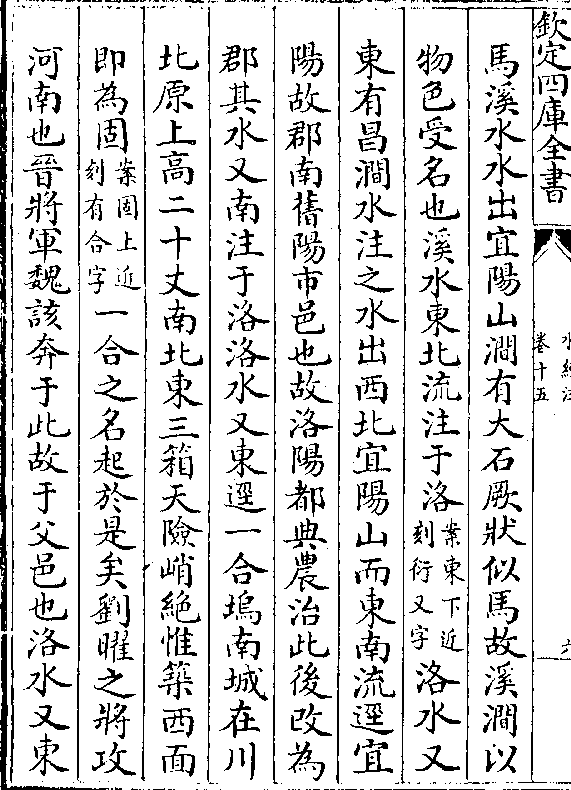 欽定四庫全書
水經注
卷十五
六
馬溪水水出宜陽山澗有大石厥狀似馬故溪澗以
物色受名也溪水東北流注于洛案東下近刻衍又字洛水又
東有昌澗水注之水出西北宜陽山而東南流逕宜
陽故郡南舊陽市邑也故洛陽都典農治此後改為
郡其水又南注于洛洛水又東逕一合塢南城在川
北原上高二十丈南北東三箱天險峭絕惟築西面
即為固案固上近刻有合字一合之名起於是矣劉曜之將攻
河南也晉將軍魏該奔于此故于父邑也洛水又東